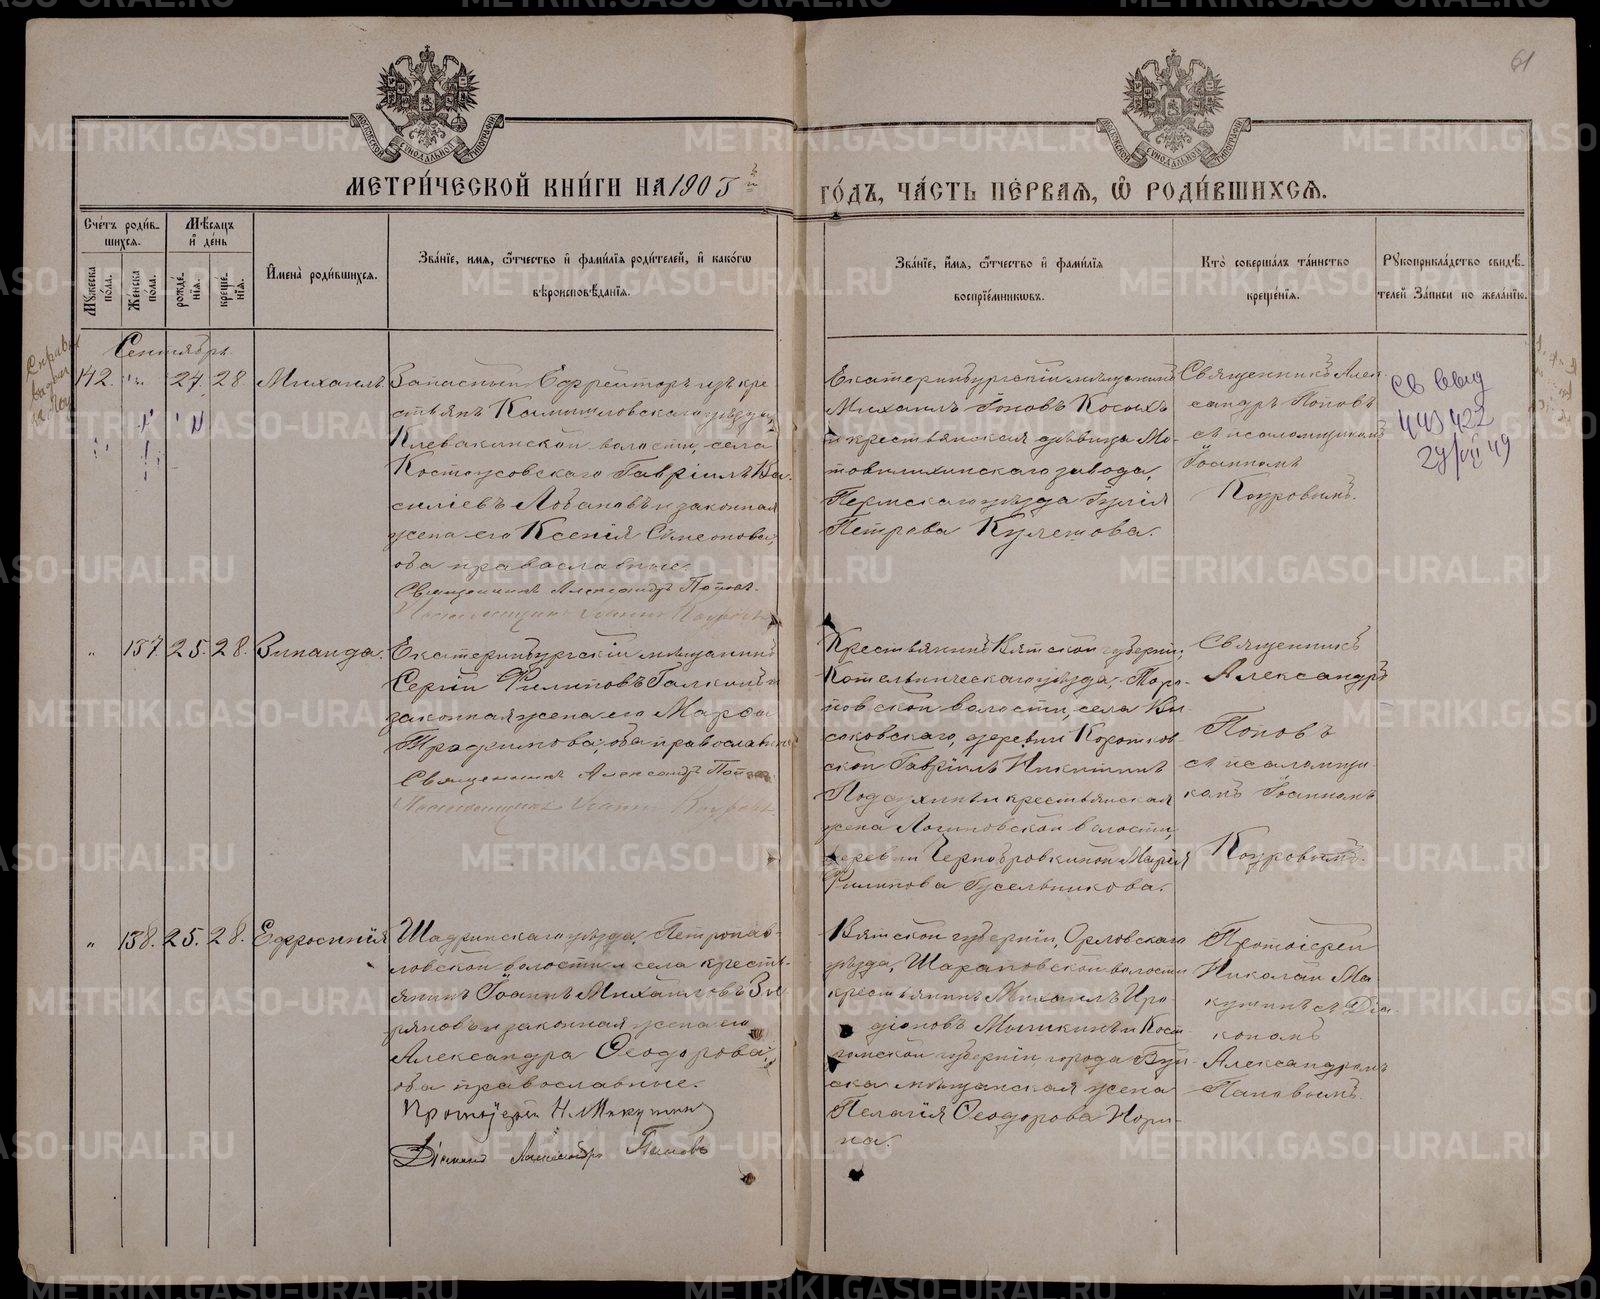 61
МЕТРИ́ЧЕСКОЙ КНИ́ГИ НА 1905 й
ГО́ДЪ, ЧА́СТЬ ПЕ́РВАЯ, Ѿ РОДИ́ВШИХСЯ.
Сче́тъ роди́в-
шихся.
Мꙋжеска по́ла.
Же́нска по́ла.
Мѣ́сяцъ и де́нь
рожде́нїя.
креще́нїя.
И́мена роди́вшихся.
Зва́нїе, и́мя, ѻ́тчество и фами́лїя роди́телей, и како́гѡ
вѣроисповѣ́данїя.
Зва́нїе, и́мя, ѻ́тчество и фами́лїя
воспрїе́мникѡвъ.
Кто̀ соверша́лъ та́инство
креще́нїя.
Рꙋкоприкла́дство свидѣ́-
телей за́писи по жела́нїю.
Сентябрь
142. " 27 28 Михаилъ
Запасный Ефрейторъ изъ кре
стьянъ Камышловскаго уѣзда,
Клевакинской волости, села
Костоусовскаго Гавріилъ Ва-
силіевъ Лобановъ и законная
жена его Ксенія Симеонова,
оба православные.
Священникъ Александръ Поповъ.
Псаломщикъ Іоаннъ Коуровъ
Екатеринбургскій мѣщанинъ
Михаилъ Іоновъ Косыхъ
и крестьянская дѣвица Мо-
товилихинскаго завода,
Пермскаго уѣзда Іулія
Петрова Кулешова.
Священникъ Алек-
сандръ Поповъ
съ псаломщикомъ
Іоанномъ
Коуровымъ.
св выд
443422
29/VII 49
" 137. 25. 28. Зинаида.
Екатеринбургскій мѣщанинъ
Сергій Филиповъ Галкинъ и
законная жена его Марѳа
Трофимова, оба православные
Священникъ Александръ Поповъ
Псаломщикъ Іоаннъ Коуровъ.
Крестьянинъ Вятской губерніи,
Котельническаго уѣзда,
повской волости, села Вы-
соковскаго, деревни Коротков-
ской Гавріилъ Никитинъ
и крестьянская
жена Логиновской волости,
деревни Чернобровкиной Марія
Филипова Гусельникова.
Священникъ
Александръ
Поповъ
съ псаломщи-
комъ Іоанномъ
Коуровымъ.
" 138. 25. 28. Ефросинія
Шадринскаго уѣзда, Петропав-
ловской волости и села кресть-
янинъ Іоаннъ Михаиловъ Зы-
ряновъ и законная жена его
Александра Ѳеодорова,
оба православные.
Протоіерей Н. Микушинъ
Діаконъ Александръ Пановъ
Вятской губерніи, Орловскаго
уѣзда, Шараповской волости
крестьянинъ Михаилъ Иро-
діоновъ Мышкинъ и Кост
ромской губерніи, города Буй-
ска мѣщанская жена
Пелагія Ѳеодорова Нори-
на.
Протоіерей
Николай Ми
кушинъ съ Діа-
кономъ
Александромъ
Пановымъ.
METRIKI.GASO-URAL.RU